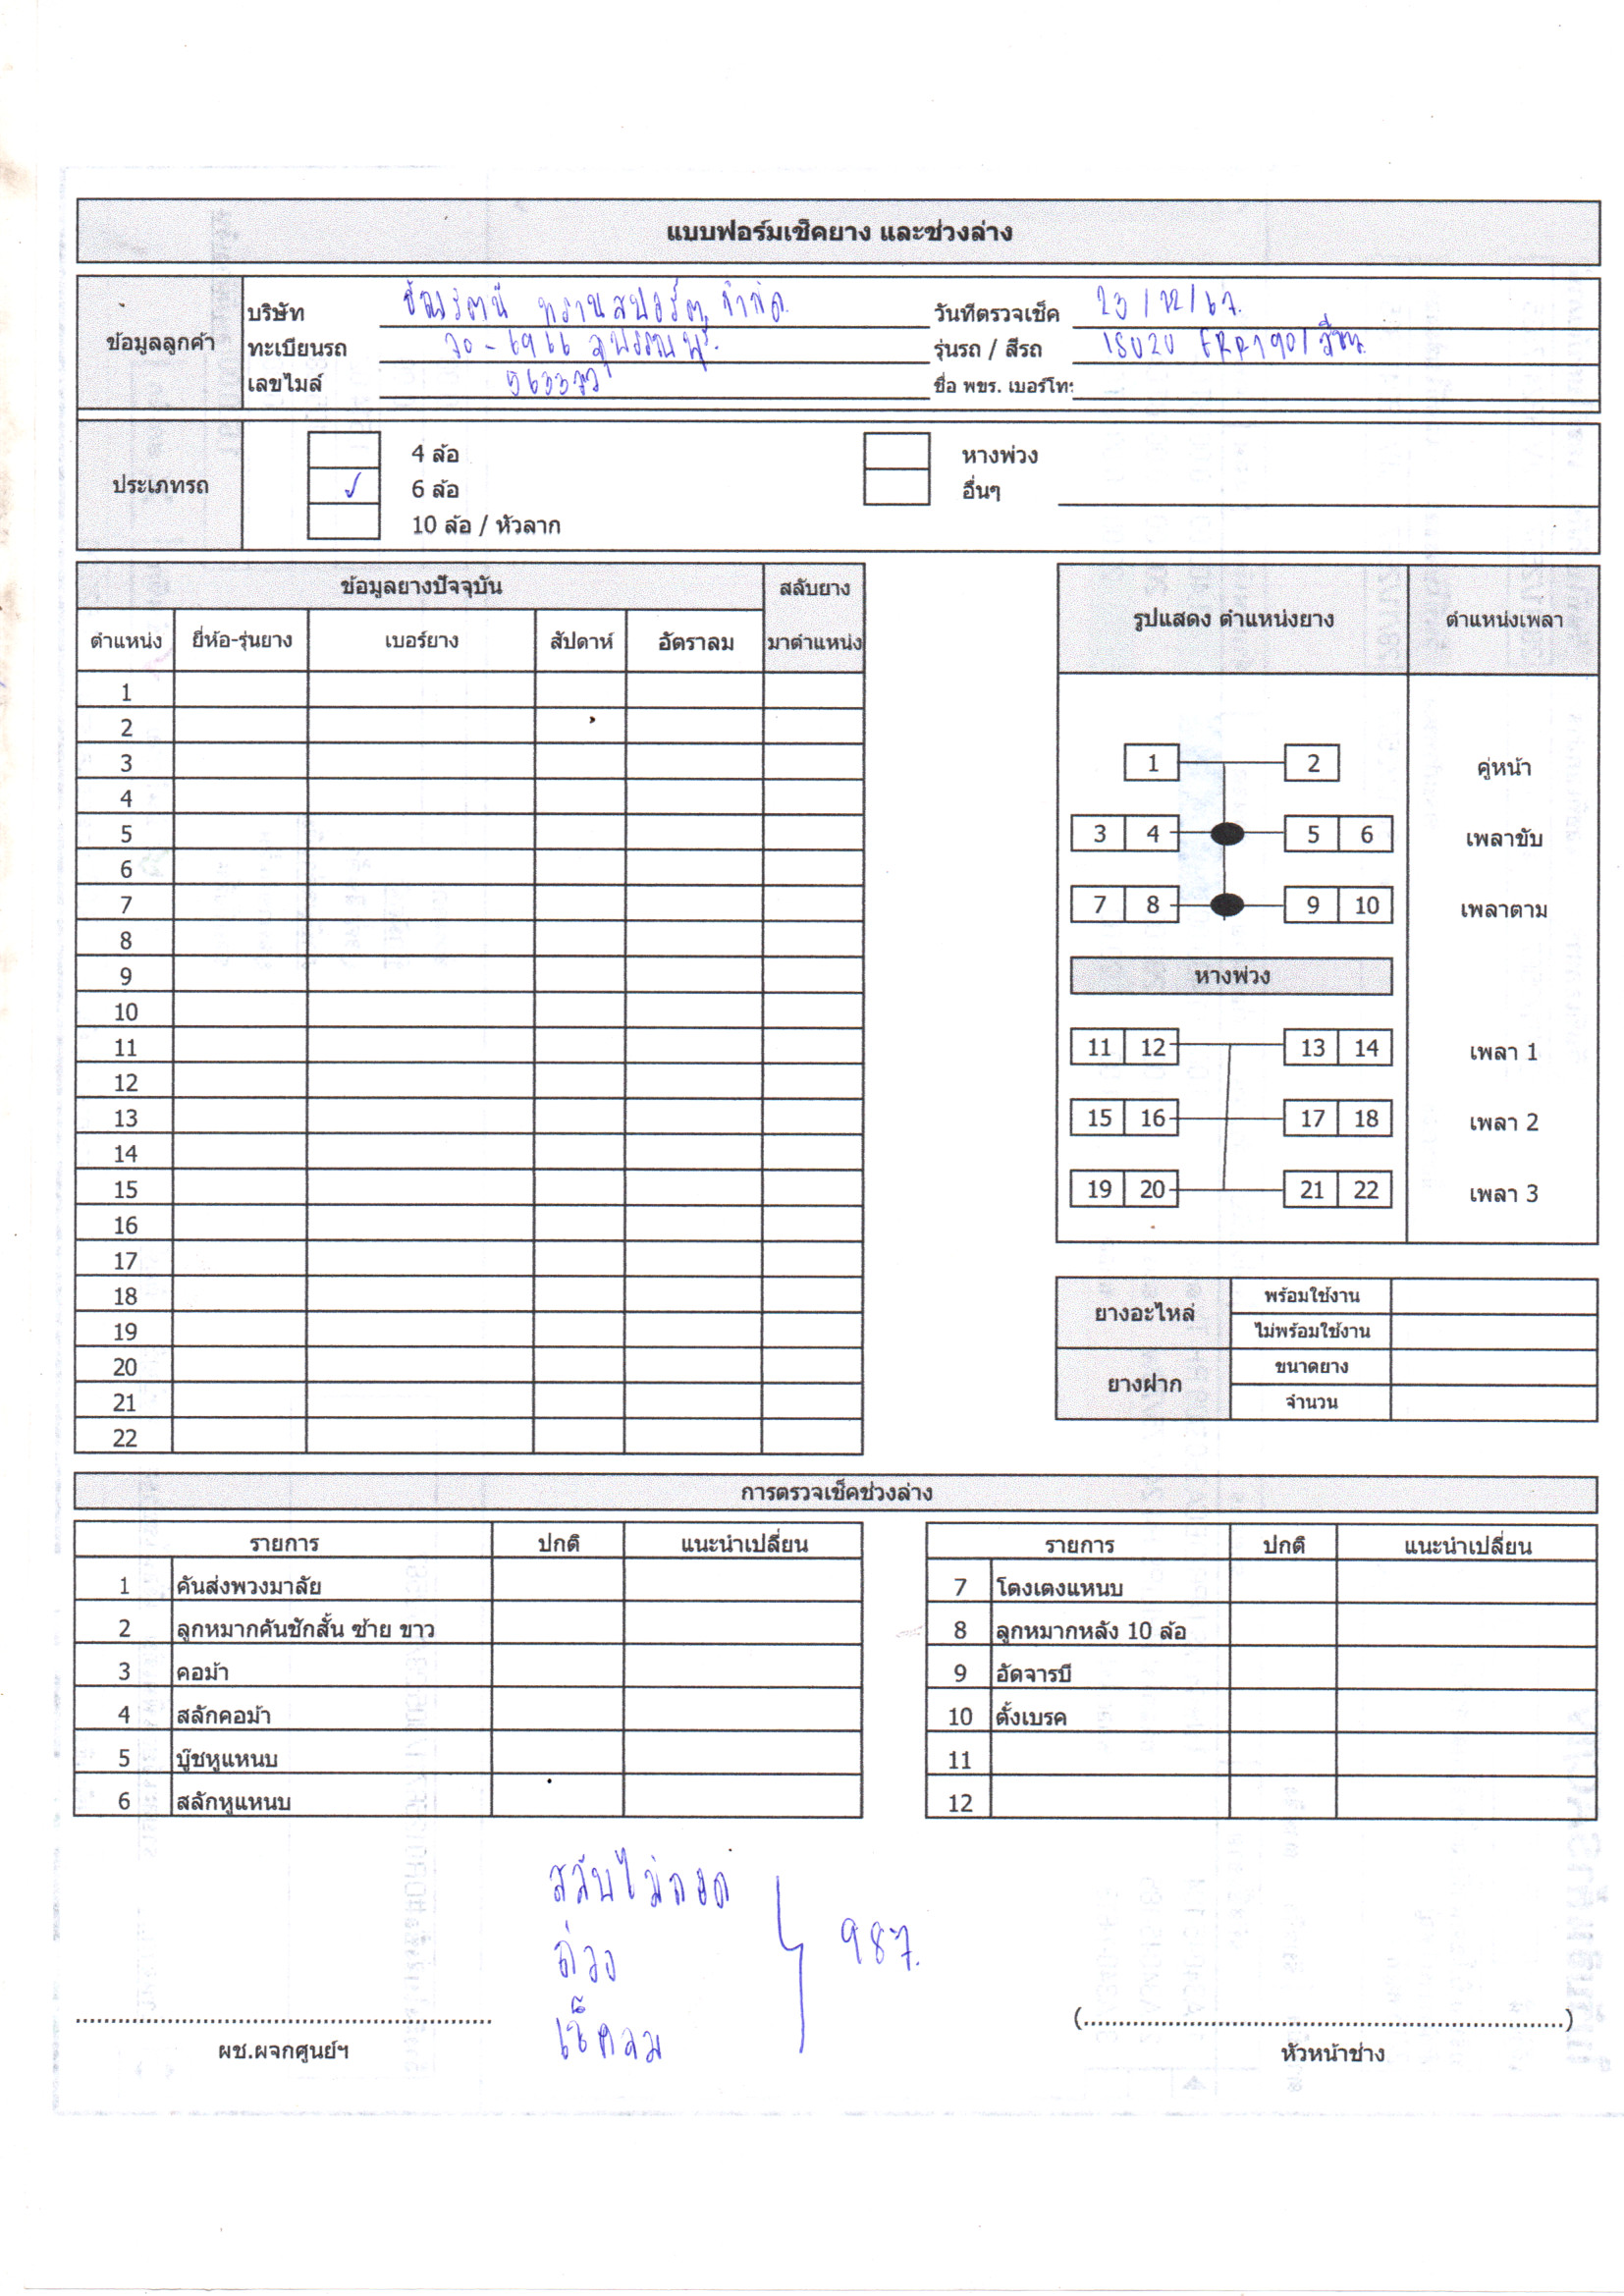 แบบฟอร์มเช็คยาง และช่วงล่าง
ข้อมูลลูกค้า
บริษัท ทรานสปอร์ต จำกัด
วันที่ตรวจเช็ค 23/12/67
ทะเบียนรถ สุพรรณบุรี
รุ่นรถ / สีรถ ISUZU
เลขไมล์
ชื่อ พขร. เบอร์โทร
ประเภทรถ
4 ล้อ
✓ 6 ล้อ
10 ล้อ / หัวลาก
หางพ่วง
อื่นๆ
ข้อมูลยางปัจจุบัน สลับยาง
ตำแหน่ง ยี่ห้อ-รุ่นยาง เบอร์ยาง สัปดาห์ อัตราลม มาตำแหน่ง
1
2
3
4
5
6
7
8
9
10
11
12
13
14
15
16
17
18
19
20
21
22
รูปแสดง ตำแหน่งยาง ตำแหน่งเพลา
1 2 คู่หน้า
3 4 5 6 เพลาขับ
7 8 9 10 เพลาตาม
หางพ่วง
11 12 13 14 เพลา 1
15 16 17 18 เพลา 2
19 20 21 22 เพลา 3
ยางอะไหล่
พร้อมใช้งาน
ไม่พร้อมใช้งาน
ยางฝาก
ขนาดยาง
จำนวน
การตรวจเช็คช่วงล่าง
รายการ ปกติ แนะนำเปลี่ยน
1 คันส่งพวงมาลัย
2 ลูกหมากคันชักสั้น ซ้าย ขาว
3 คอม้า
4 สลักคอม้า
5 บู๊ชหูแหนบ
6 สลักหูแหนบ
รายการ ปกติ แนะนำเปลี่ยน
7 โตงเตงแหนบ
8 ลูกหมากหลัง 10 ล้อ
9 อัดจารบี
10 ตั้งเบรค
11
12
สลับไม่ถอด
ถ่วง
เช็คลม
987.
ผช.ผจกศูนย์ฯ
(..........)
หัวหน้าช่าง